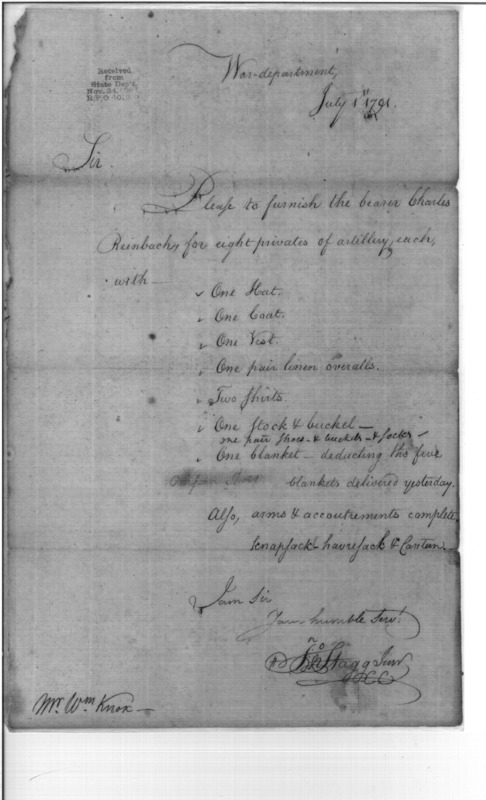 Received
from
State Dep't
Nov. 24
War-department,
July 1st 1791.
Sir.
Please to furnish the bearer Charles
Reinbach, for eight privates of artillery, each,
with —
One Hat.
One Coat.
One Vest.
One pair linen overalls.
Two Shirts.
One stock & buckel —
one pair shoes - & buckels - & socks -
One blanket — deducting the five
blankets delivered yesterday.
Also, arms & accoutrements complete,
knapsack - havresack & Canteen.
I am Sir
Your humble Servt
Jno Stagg Junr
Mr. Wm Knox —